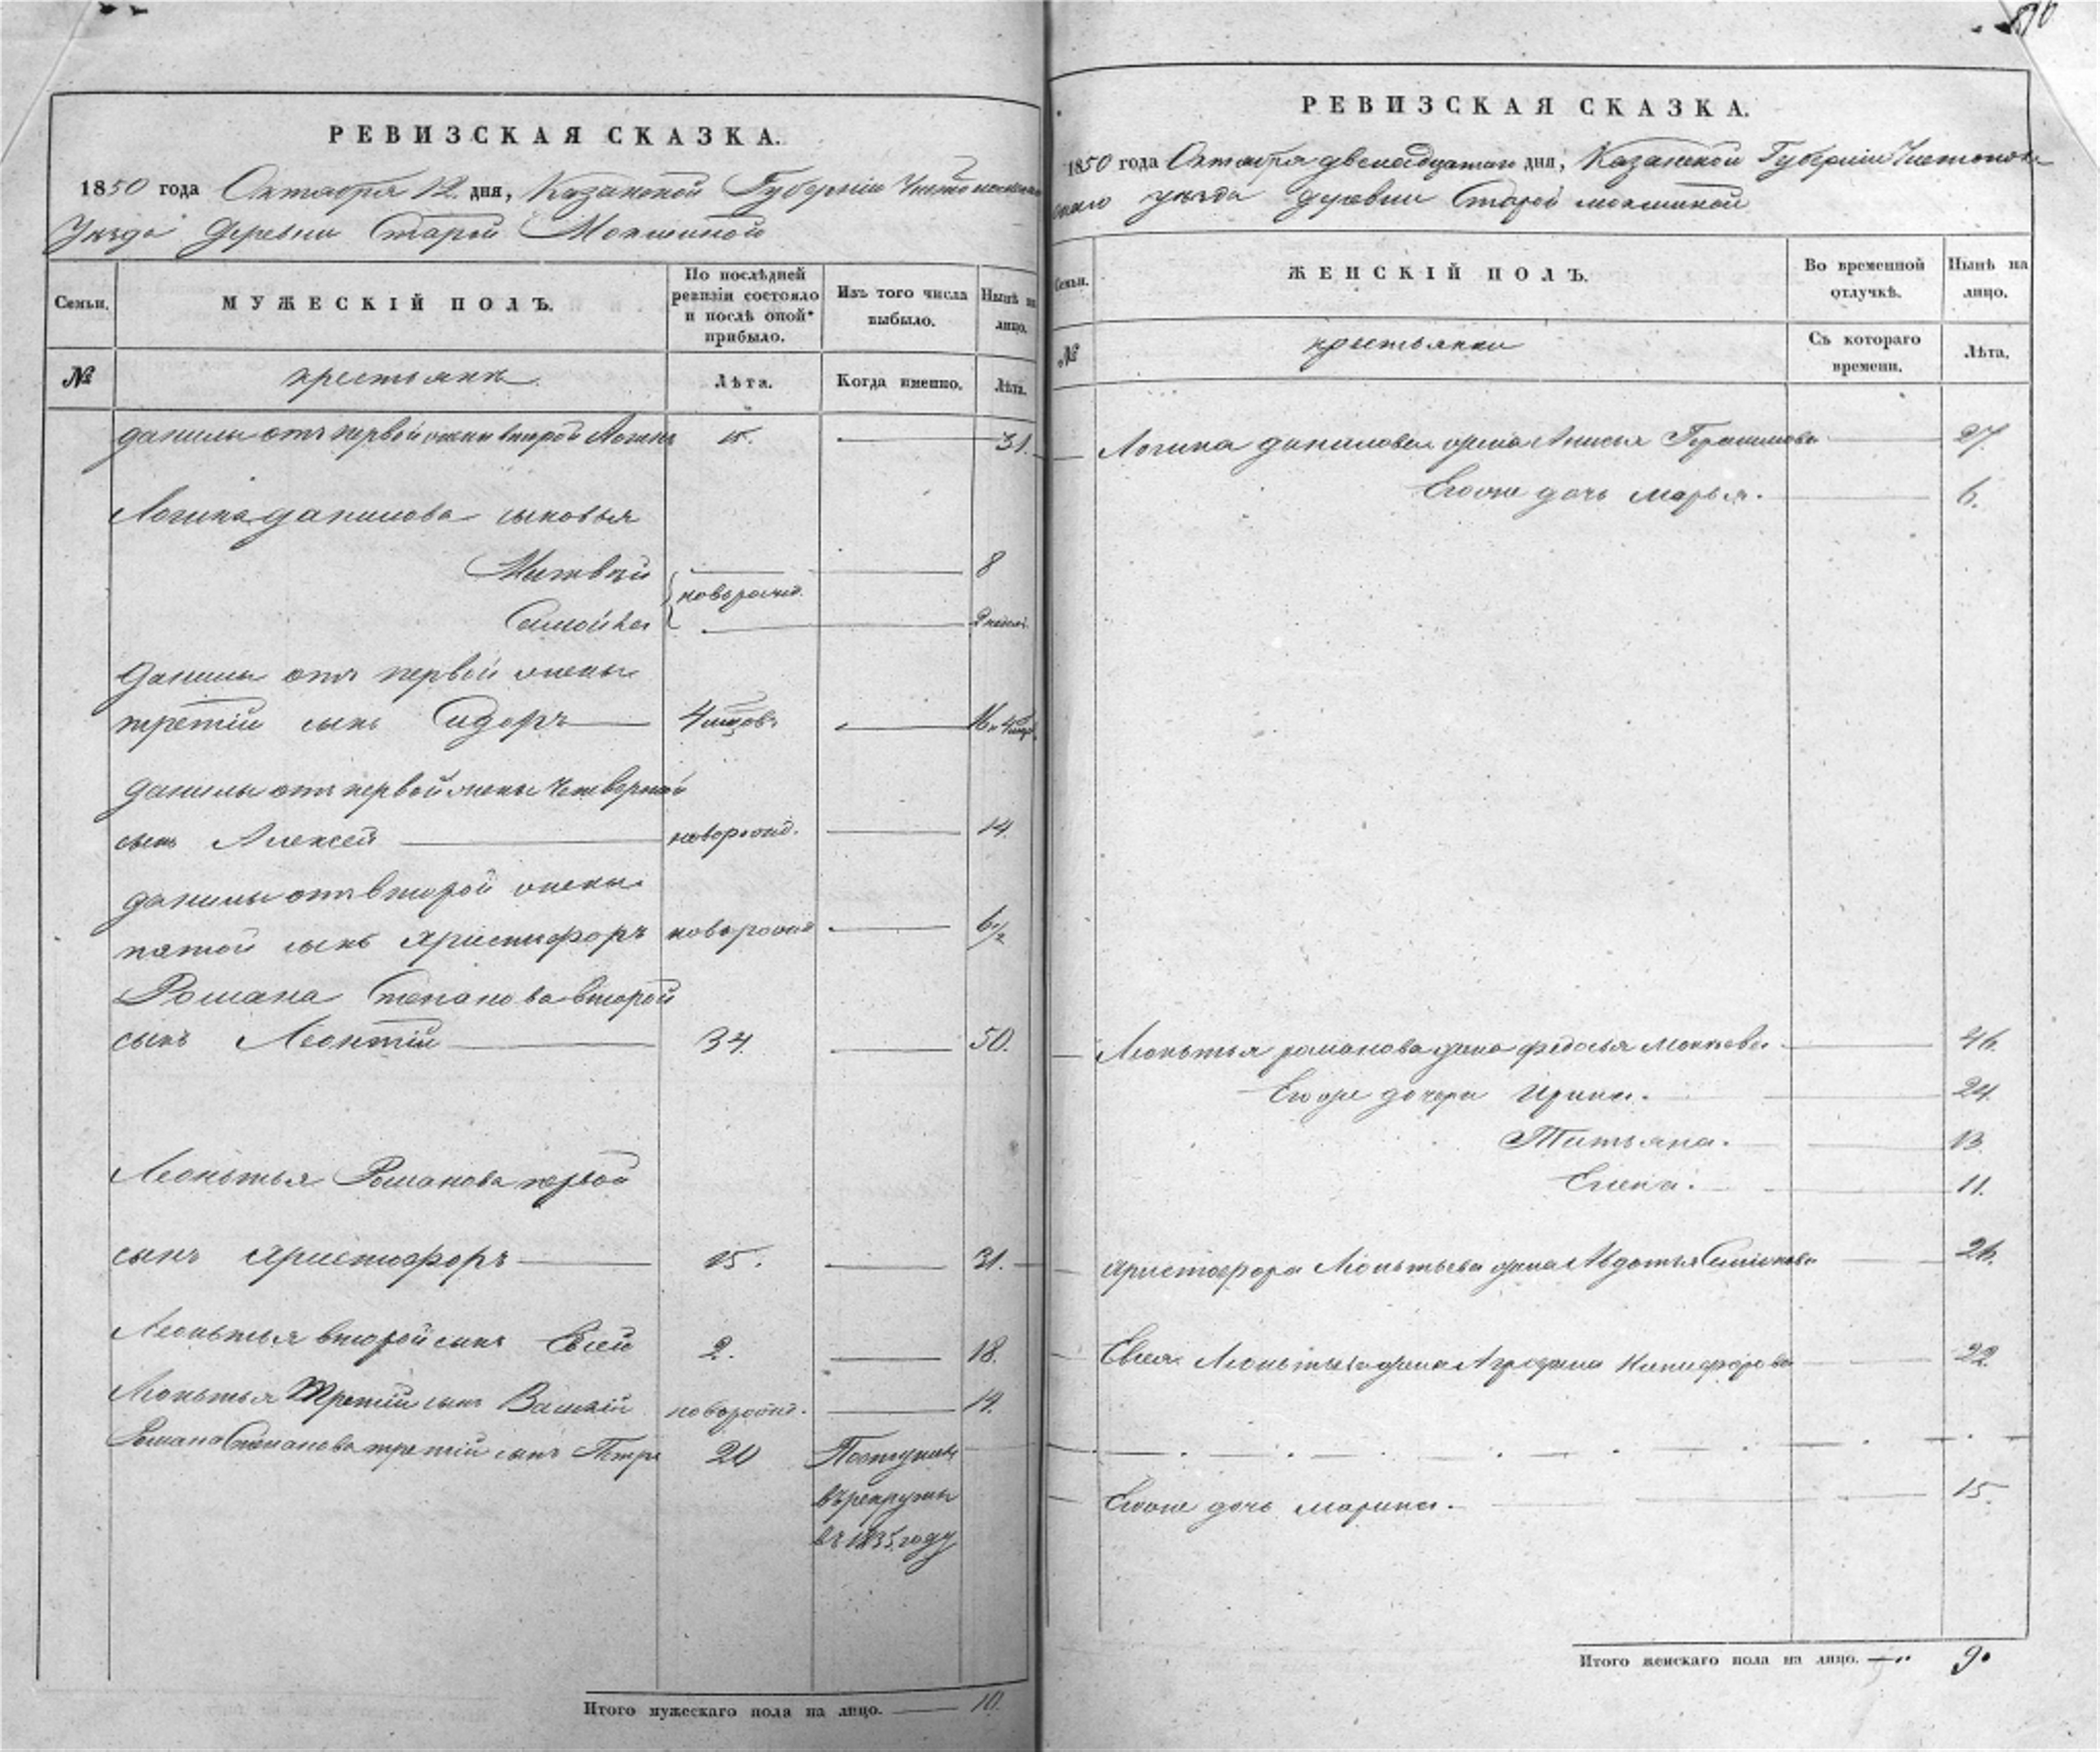 896
РЕВИЗСКАЯ СКАЗКА.
1850 года Октября 12. дня, Казанской Губернии Чистопольскаго
Уезда Деревни Старой Мокшиной
Семьи.
МУЖЕСКІЙ ПОЛЪ.
По послѣдней ревизіи состояло и послѣ оной прибыло.
Изъ того числа выбыло.
Нынѣ на лицо.
№
крестьянъ
Лѣта.
Когда именно.
Лѣта.
данилы отъ первой жены второй Логинъ 15. 31.
Логина данилова сыновья
Матвѣй 8
новорожд.
Самойла 2 недел.
Данилы отъ первой жены
третій сынъ Сидоръ 4 месцовъ 16 и 4 мес.
данилы отъ первой жены Четвертой
сынъ Алексей новорожд. 14.
данилы отъ второй жены
пятой сынъ Аристафоръ новорожд 6 1/2
Романа Степанова второй
сынъ Леонтій 34. 50.
Леонтья Романова первой
сынъ Аристофоръ 15. 31.
Леонтья второй сынъ Евсей 2. 18.
Леонтья Третій сынъ Василій новорожд. 14.
Романа Степанова третій сынъ Петръ 20 Поступилъ
въ рекруты
въ 1835 году
Итого мужескаго пола на лицо. 10.
РЕВИЗСКАЯ СКАЗКА.
1850 года Октября двенадцатаго дня, Казанской Губерніи Чистополь
скаго уезда деревни Старой мокшиной
Семьи.
ЖЕНСКІЙ ПОЛЪ.
Во временной отлучкѣ.
Нынѣ на лицо.
№
крестьянки
Съ котораго времени.
Лѣта.
Логина данилова жена Анисья Герасимова 27.
Ево же дочь марья. 6.
Леонтья романова жена федосья Мокеева 46.
Ево же дочери Ирина. 24.
Татьяна. 13.
Елена. 11.
Аристофора Леонтьева жена Авдотья Семенова 26.
Евсея Леонтьева жена Аграфена Никифорова 22.
Евоже дочь марина. 15.
Итого женскаго пола на лицо. 9.